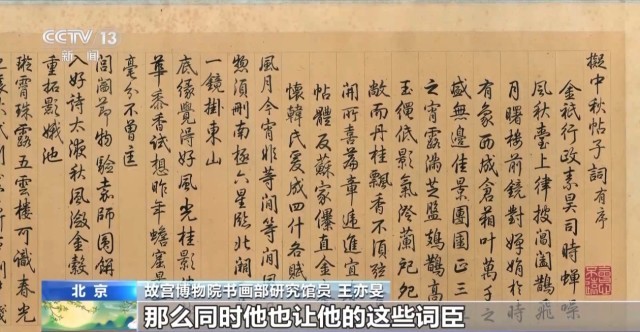 CCTV 13
新闻
擬中秋帖子詞有序
金祇行政素昊司時蟬噪
風秋臺上律披閶闔鵲飛
月曙樓前鏡對嬋娟於
有象西成倉箱葉萬
盛無邊佳景團圞正三
之宵露滿芝盤鳷鵲高
玉繩低影氣澄蘭戺
敞而丹桂飄香不須
開所喜篇章遞進宜
帖體反蘇家儤直金
懷韓氏爰成四什各賦
風月今宵非等閒等閒風
惣須刪南極六星臨北闕
一鏡掛東山
底緣覺得好風光桂影
華黍香試想昨年蟾窟
毫分不曾
閶闔節物驗袁師圓解
入好詩太液秋風激金
重拓影娥池
璇霄珠露五雲樓可識春光
北京
故宫博物院书画部研究馆员 王亦旻
那么同时他也让他的这些词臣